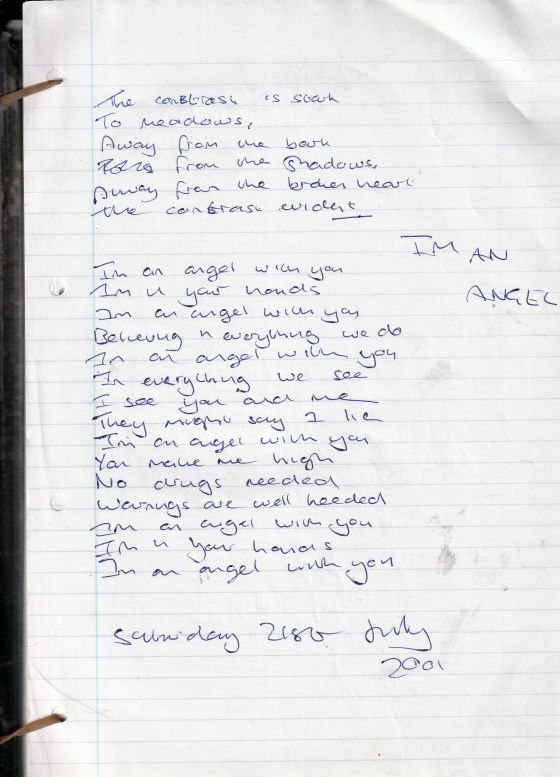 The contrast is stark
To meadows,
Away from the bark
from the shadows,
Away from the broken heart
the contrast evident
IM AN
ANGEL
Im an angel with you
Im in your hands
Im an angel with you
Believing in everything we do
Im an angel with you
In everything we see
I see you and me
They might say I lie
I'm an angel with you
You make me high
No drugs needed
Warnings are well heeded
Im an angel with you
Im in your hands
Im an angel with you
Saturday 21st July
2001